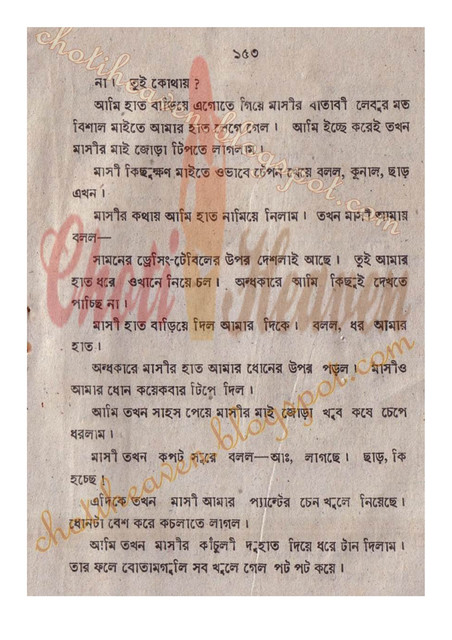 ১৫৩
না। তুই কোথায়?
আমি হাত বাড়িয়ে এগোতে গিয়ে মাসীর বাতাবী লেবুর মত
বিশাল মাইতে আমার হাত লেগে গেল। আমি ইচ্ছে করেই তখন
মাসীর মাই জোড়া টিপতে লাগলাম।
মাসী কিছুক্ষণ মাইতে ওভাবে টেপন খেয়ে বলল, কুনাল, ছাড়
এখন।
মাসীর কথায় আমি হাত নামিয়ে নিলাম। তখন মাসী আমায়
বলল—
সামনের ড্রেসিং-টেবিলের উপর দেশলাই আছে। তুই আমার
হাত ধরে ওখানে নিয়ে চল। অন্ধকারে আমি কিছুই দেখতে
পাচ্ছি না।
মাসী হাত বাড়িয়ে দিল আমার দিকে। বলল, ধর আমার
হাত।
অন্ধকারে মাসীর হাত আমার ধোনের উপর পড়ল। মাসীও
আমার ধোন কয়েকবার টিপে দিল।
আমি তখন সাহস পেয়ে মাসীর মাই জোড়া খুব কষে চেপে
ধরলাম।
মাসী তখন কপট সুরে বলল—আঃ, লাগছে। ছাড়, কি
হচ্ছে।
এদিকে তখন মাসী আমার প্যান্টের চেন খুলে নিয়েছে।
ধোনটা বেশ করে কচলাতে লাগল।
আমি তখন মাসীর কাঁচুলী দুহাত দিয়ে ধরে টান দিলাম।
তার ফলে বোতামগুলি সব খুলে গেল পট পট করে।
Choti Heaven
chotiheaven.blogspot.com
chotiheaven.blogspot.com